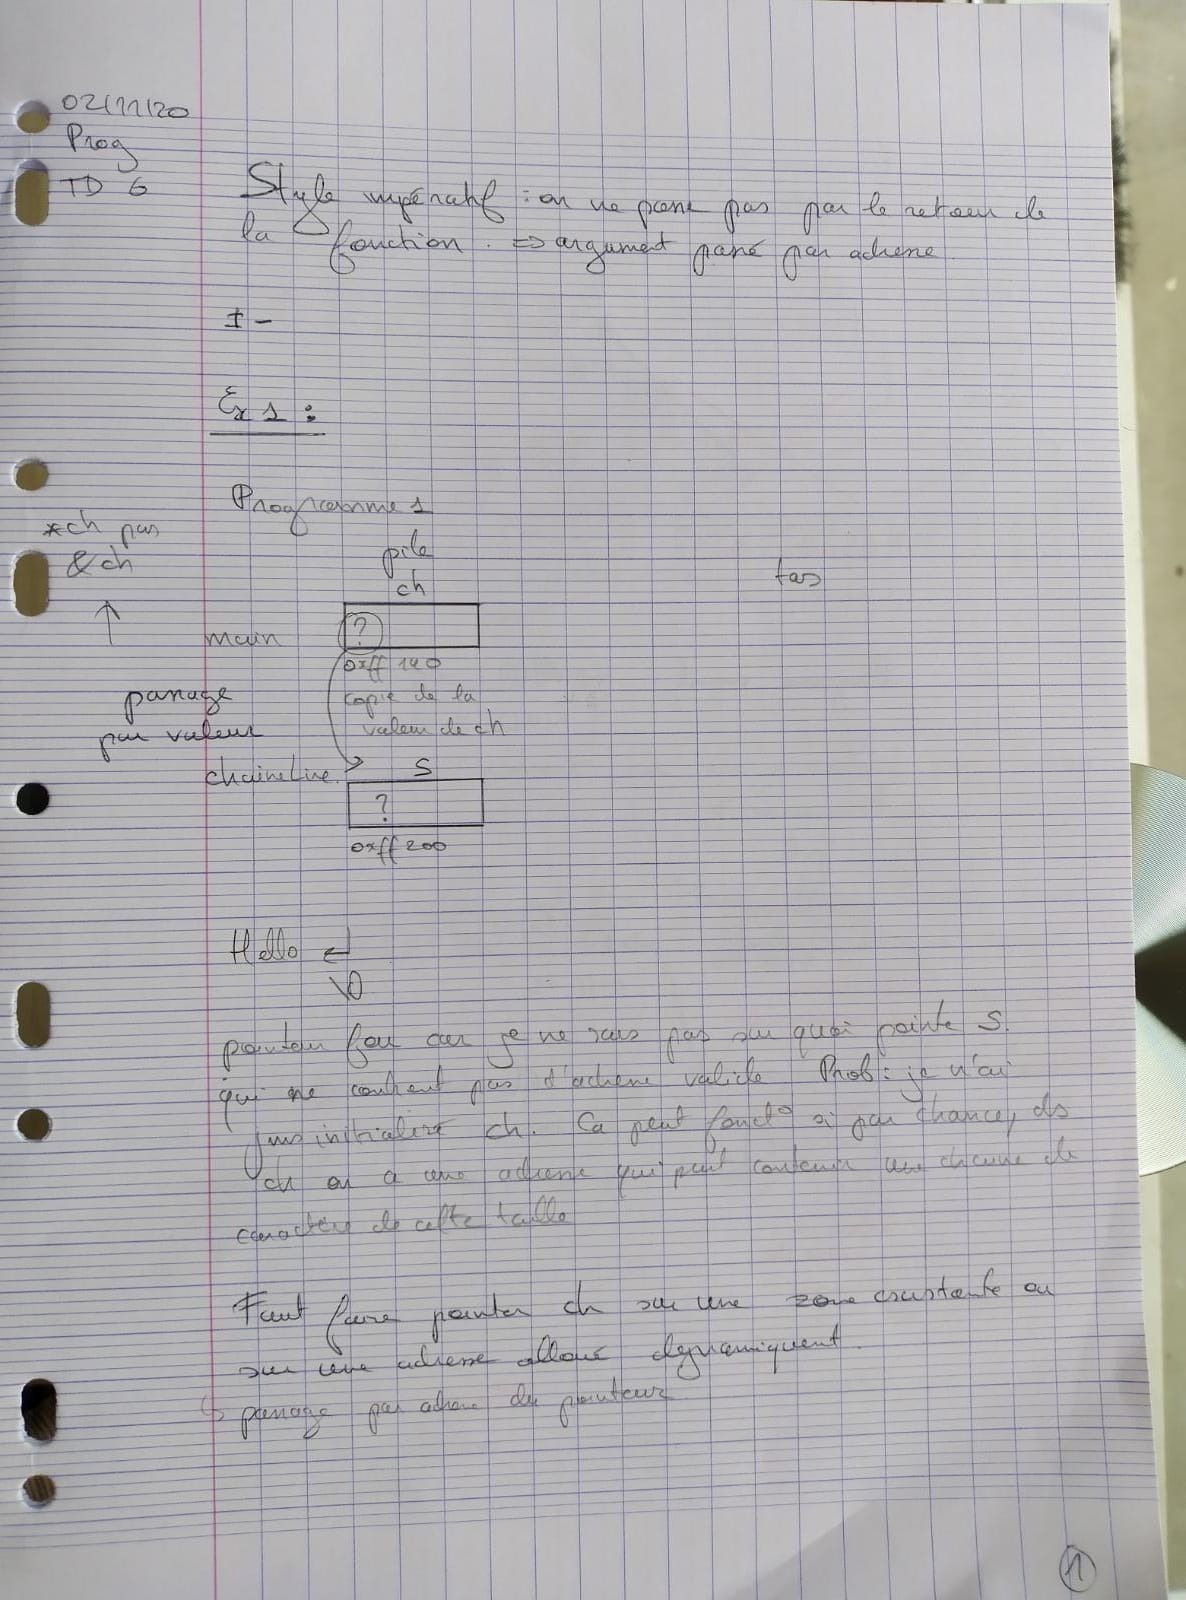 02/11/20
Prog
TD 6
Style impératif : on ne passe pas par le retour de
la fonction. => argument passé par adresse
I -
Ex 1 :
Programme 1
*ch pas
&ch
↑
passage
par valeur
pile
tas
ch
main
?
0xff140
copie de la
valeur de ch
chaineLire
S
?
0xff200
Hello ↵
\0
pointeur fou car je ne sais pas sur quoi pointe S.
qui ne contient pas d'adresse valide Prob : je n'ai
pas initialisé ch. Ca peut fonct° si par chance, ds
ch on a une adresse qui peut contenir une chaine de
caractère de cette taille
Faut faire pointer ch sur une zone existante ou
sur une adresse alloué dynamiquent.
↳ passage par adresse du pointeur
1